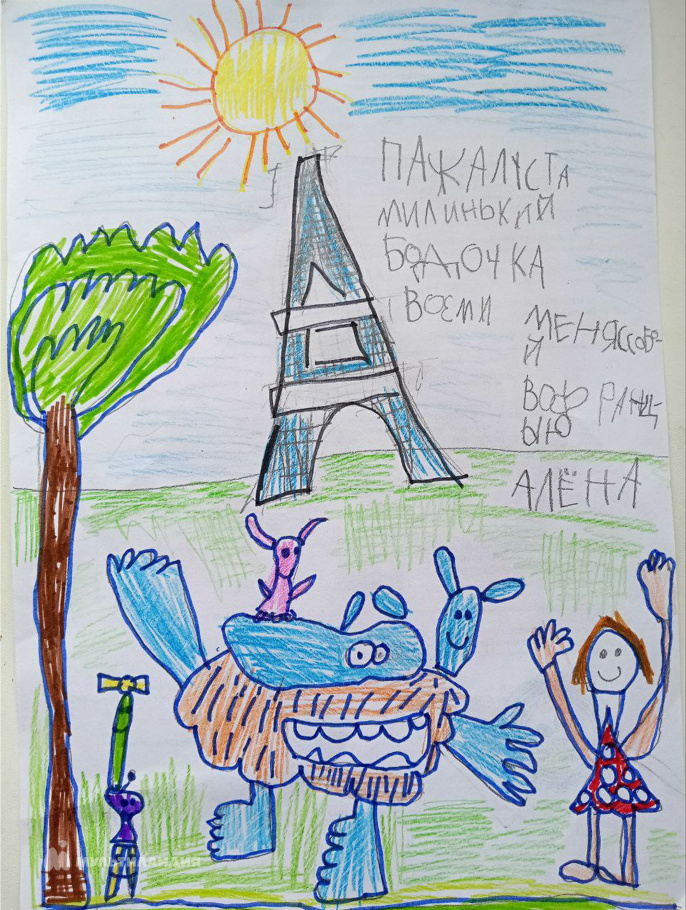 ПАЖАЛУСТА
МИЛИНЬКИЙ
БОДОЧКА
ВОСМИ МЕНЯССОБО-
Й
ВОФРАНЦ-
ЫЮ
АЛЁНА
МУЛЬТИЛАНДИЯ